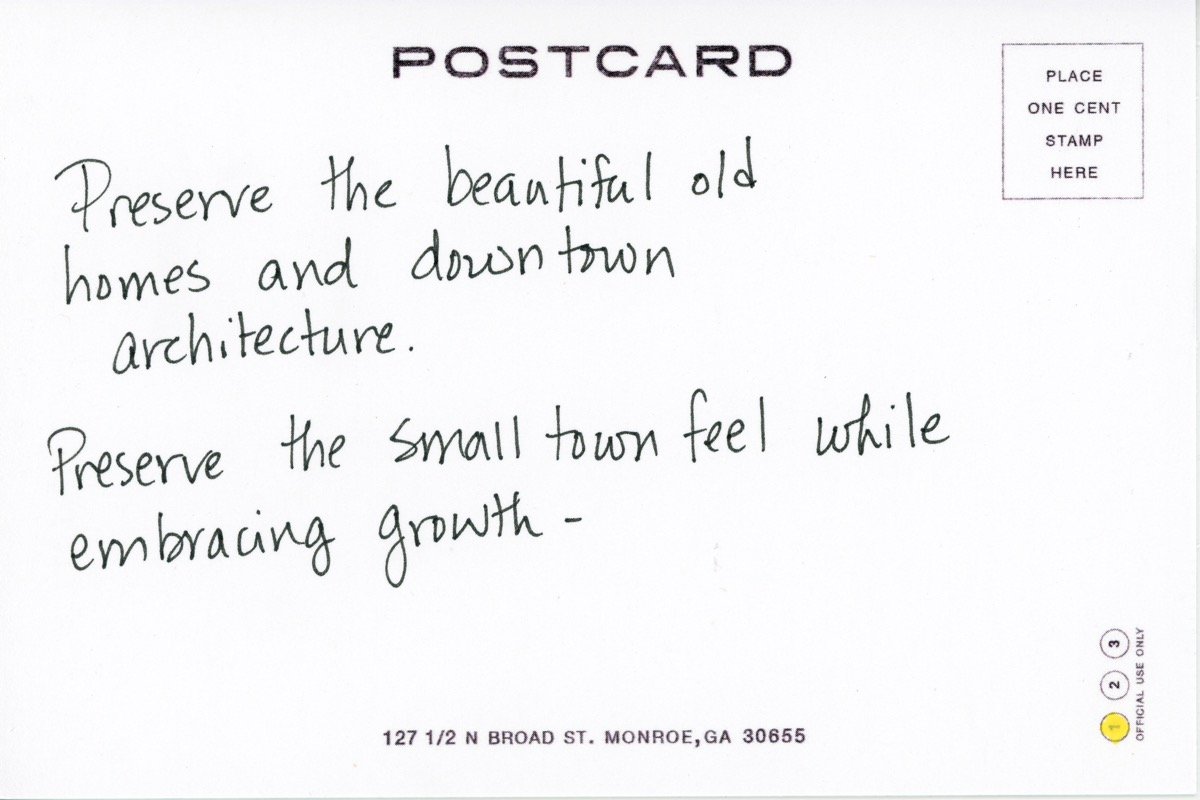 POSTCARD
PLACE
ONE CENT
STAMP
HERE
Preserve the beautiful old
homes and downtown
architecture.
Preserve the small town feel while
embracing growth -
1 2 3
OFFICIAL USE ONLY
127 1/2 N BROAD ST. MONROE, GA 30655